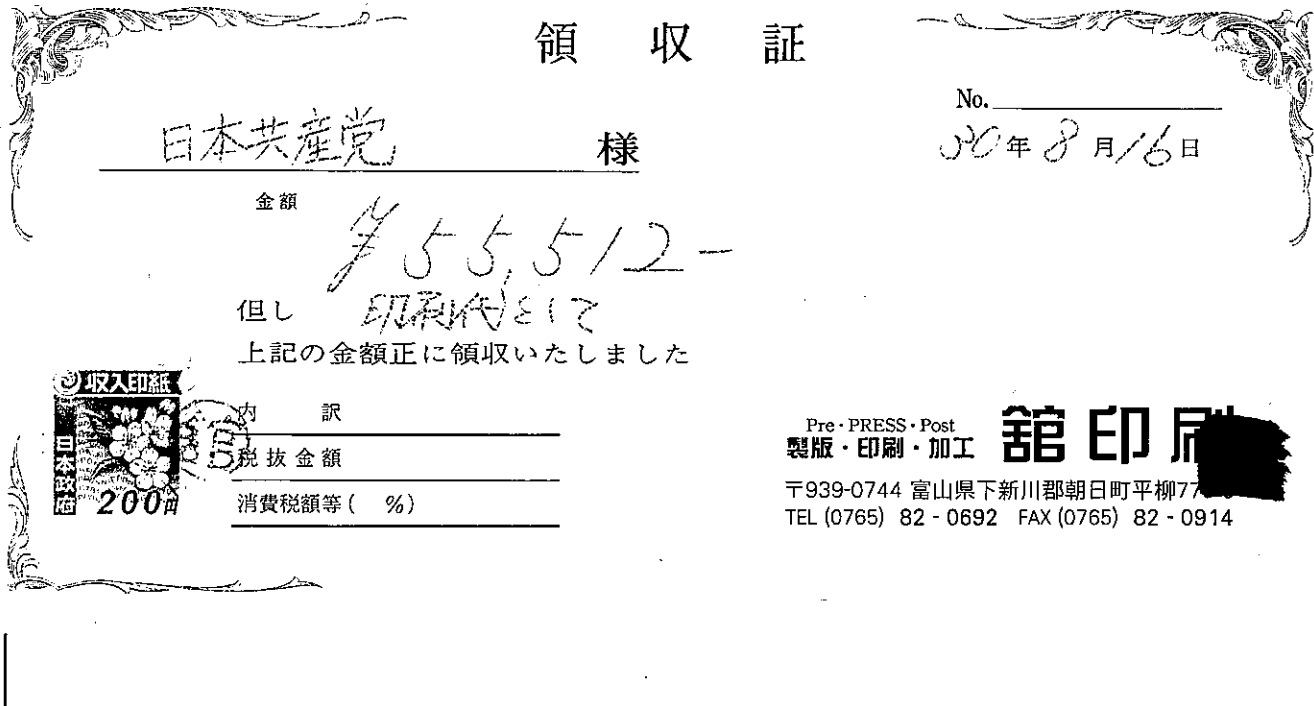 領収証
No.
日本共産党 様
30年8月16日
金額
¥55,512-
但し 印刷代として
上記の金額正に領収いたしました
収入印紙
日本政府
200円
内訳
税抜金額
消費税額等( %)
Pre・PRESS・Post
製版・印刷・加工
舘印刷
〒939-0744 富山県下新川郡朝日町平柳77
TEL (0765) 82-0692 FAX (0765) 82-0914